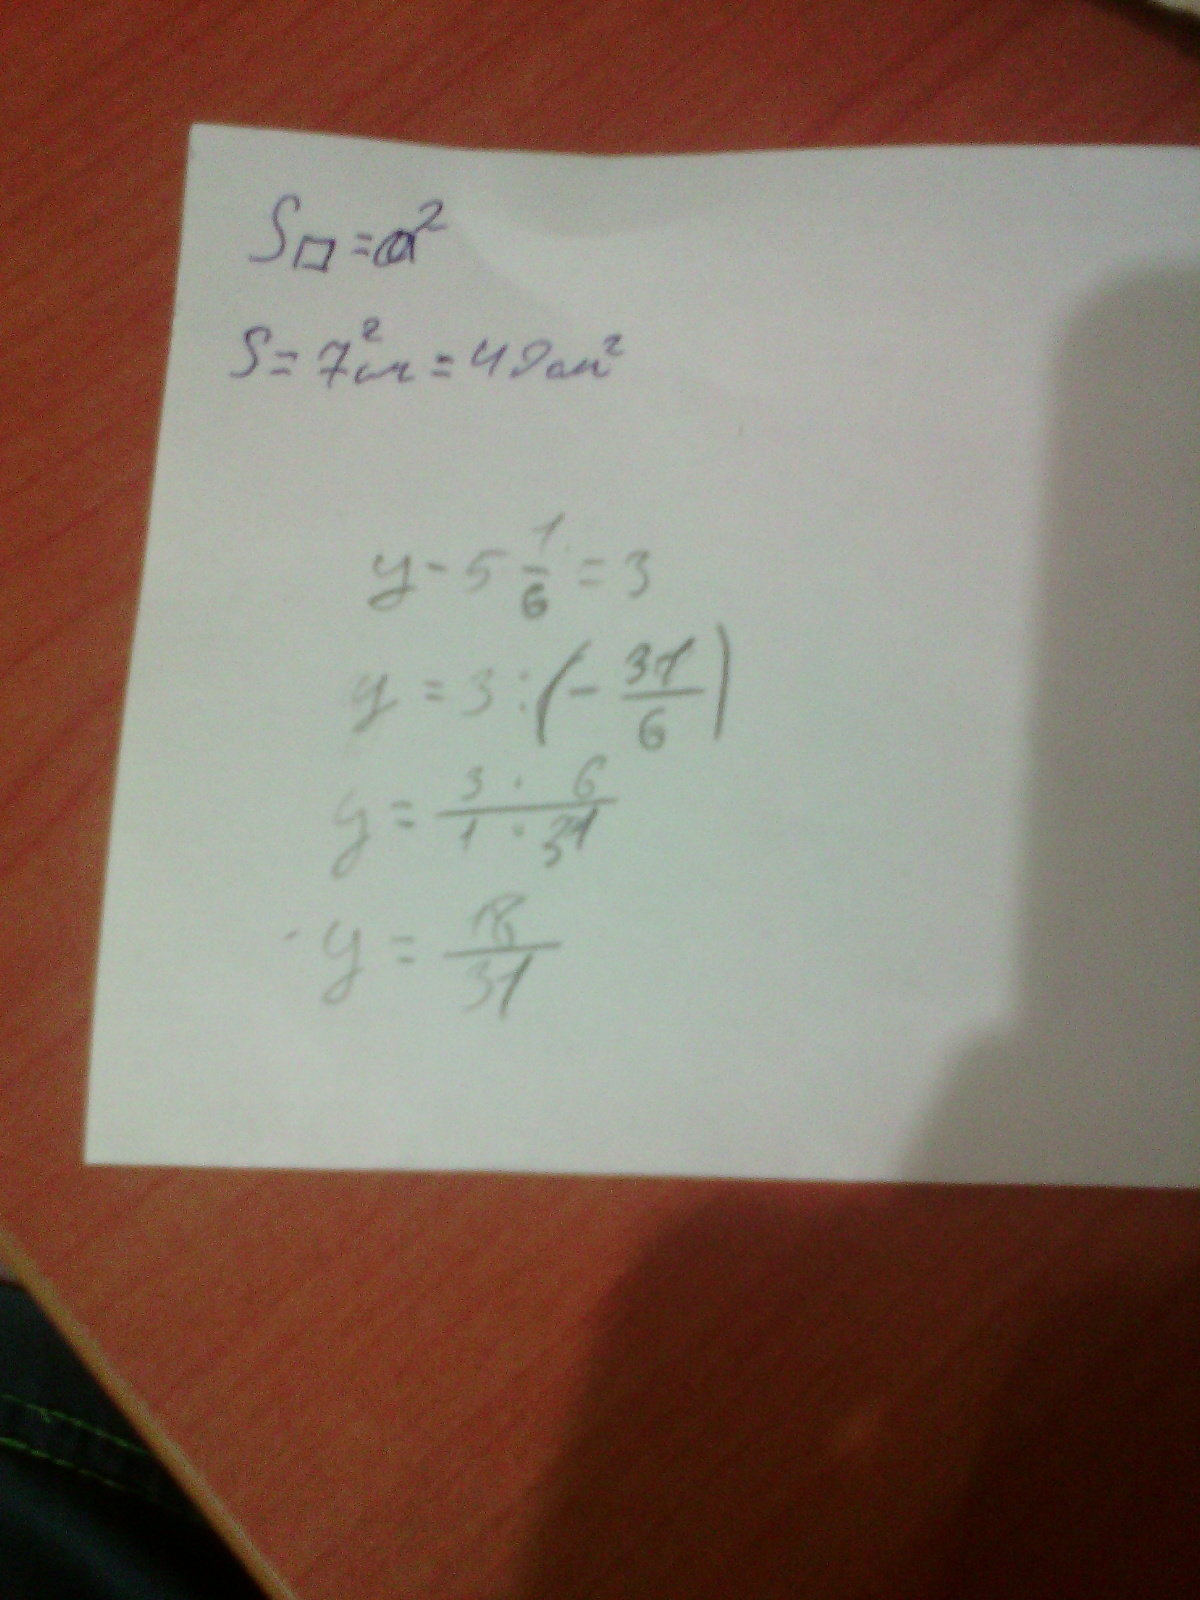 S□ = a²
S = 7² см = 49 см²
y - 5 1/6 = 3
y = 3 : (- 31/6)
y = 3 · 6 / 1 · 31
y = 18/31